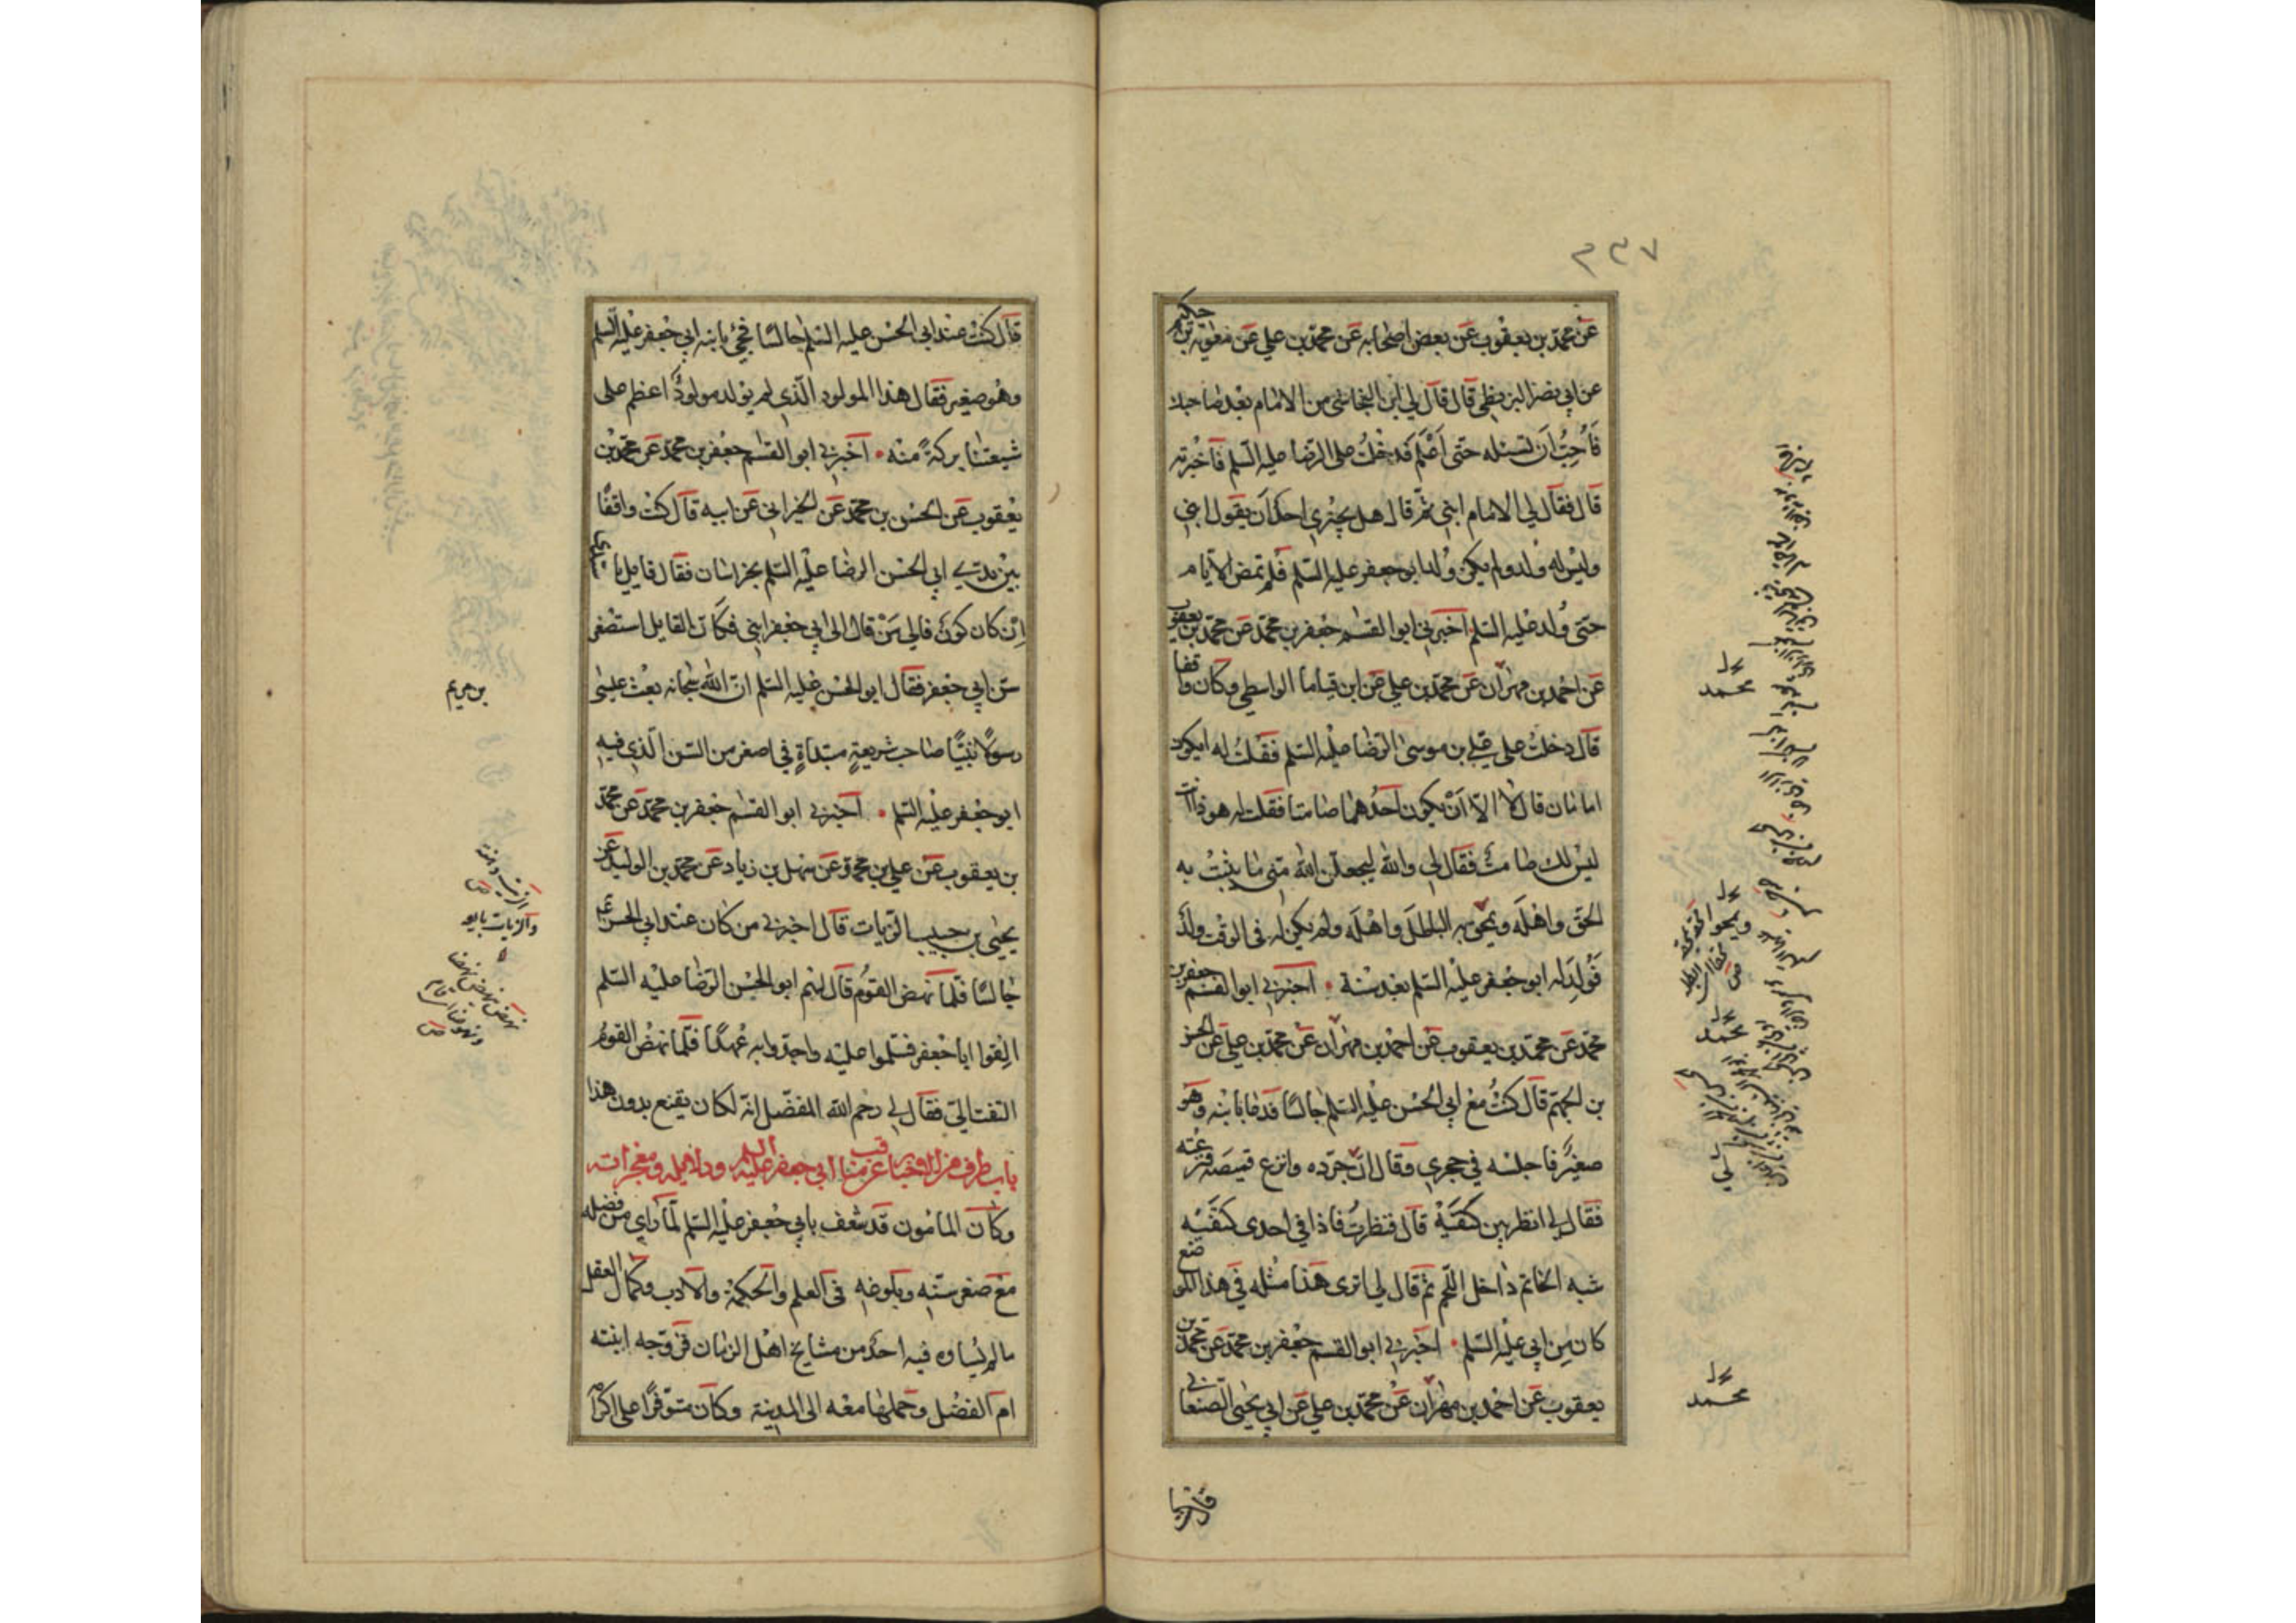 ٣٣٧
عن محمد بن يعقوب عن بعض اصحابه عن محمد بن علي عن معوية بن حكيم
عن ابي نصر البزنطي قال قال لي ابن النجاشي من الامام بعد صاحبك
فاحب ان تسئله حتى اعلم فدخلت على الرضا عليه السلم فاخبرته
قال فقال لي الامام ابني ثم قال هل يجتري احد ان يقول ابني
وليس له ولد ولم يكن ولد ابو جعفر عليه السلم فلم تمض الايام
حتى ولد عليه السلم اخبرني ابو القسم جعفر بن محمد عن محمد بن يعقوب
عن احمد بن مهران عن محمد بن علي عن ابن قياما الواسطي وكان واقفا
قال دخلت على علي بن موسى الرضا عليه السلم فقلت له ايكون
امامان قال لا الا ان يكون احدهما صامتا فقلت له هوذا انت
ليس لك صامت فقال لي والله ليجعلن الله مني ما يثبت به
الحق واهله ويمحق به الباطل واهله ولم يكن له في الوقت ولد
فولد له ابو جعفر عليه السلم بعد سنة اخبرني ابو القسم جعفر بن
محمد عن محمد بن يعقوب عن احمد بن مهران عن محمد بن علي عن الحسن
بن الجهم قال كنت مع ابي الحسن عليه السلم جالسا فدعا بابنه وهو
صغير فاجلسه في حجري وقال لي جرده وانزع قميصه فنزعته
فقال لي انظر بين كتفيه قال فنظرت فاذا في احدى كتفيه
شبه الخاتم داخل اللحم ثم قال لي اترى هذا مثله في هذا الموضع
كان من ابي عليه السلم اخبرني ابو القسم جعفر بن محمد عن محمد بن
يعقوب عن احمد بن مهران عن محمد بن علي عن ابي يحيى الصنعاني
محمد
محمد
محمد
قال كنت
قال كنت عند ابي الحسن عليه السلم جالسا فجئ بابنه ابي جعفر عليه السلم
وهو صغير فقال هذا المولود الذي لم يولد مولود اعظم على
شيعتنا بركة منه اخبرني ابو القسم جعفر بن محمد عن محمد بن
يعقوب عن الحسن بن محمد عن الخيراني عن ابيه قال كنت واقفا
بين يدي ابي الحسن الرضا عليه السلم بخراسان فقال قايل يا سيدي
ان كان كون فالى من قال الى ابي جعفر ابني فكان القايل استصغر
سن ابي جعفر فقال ابو الحسن عليه السلم ان الله سبحانه بعث عيسى
بن مريم
رسولا نبيا صاحب شريعة مبتداة في اصغر من السن الذي فيه
ابو جعفر عليه السلم اخبرني ابو القسم جعفر بن محمد عن محمد
بن يعقوب عن علي بن محمد عن سهل بن زياد عن محمد بن الوليد عن
يحيى بن حبيب الزيات قال اخبرني من كان عند ابي الحسن
جالسا فلما نهض القوم قال لهم ابو الحسن الرضا عليه السلم
القوا ابا جعفر فسلموا عليه واجدوا به عهدا فلما نهض القوم
التفت الي فقال لي رحم الله المفضل انه لكان يقنع بدون هذا
باب طرف من الاخبار عن مناقب ابي جعفر عليه السلم ودلايله ومعجزاته
وكان المامون قد شعف بابي جعفر عليه السلم لما راى من فضله
مع صغر سنه وبلوغه في العلم والحكمة والادب وكمال العقل
ما لم يساوه فيه احد من مشايخ اهل الزمان فزوجه ابنته
ام الفضل وحملها معه الى المدينة وكان متوفرا على اكرامه